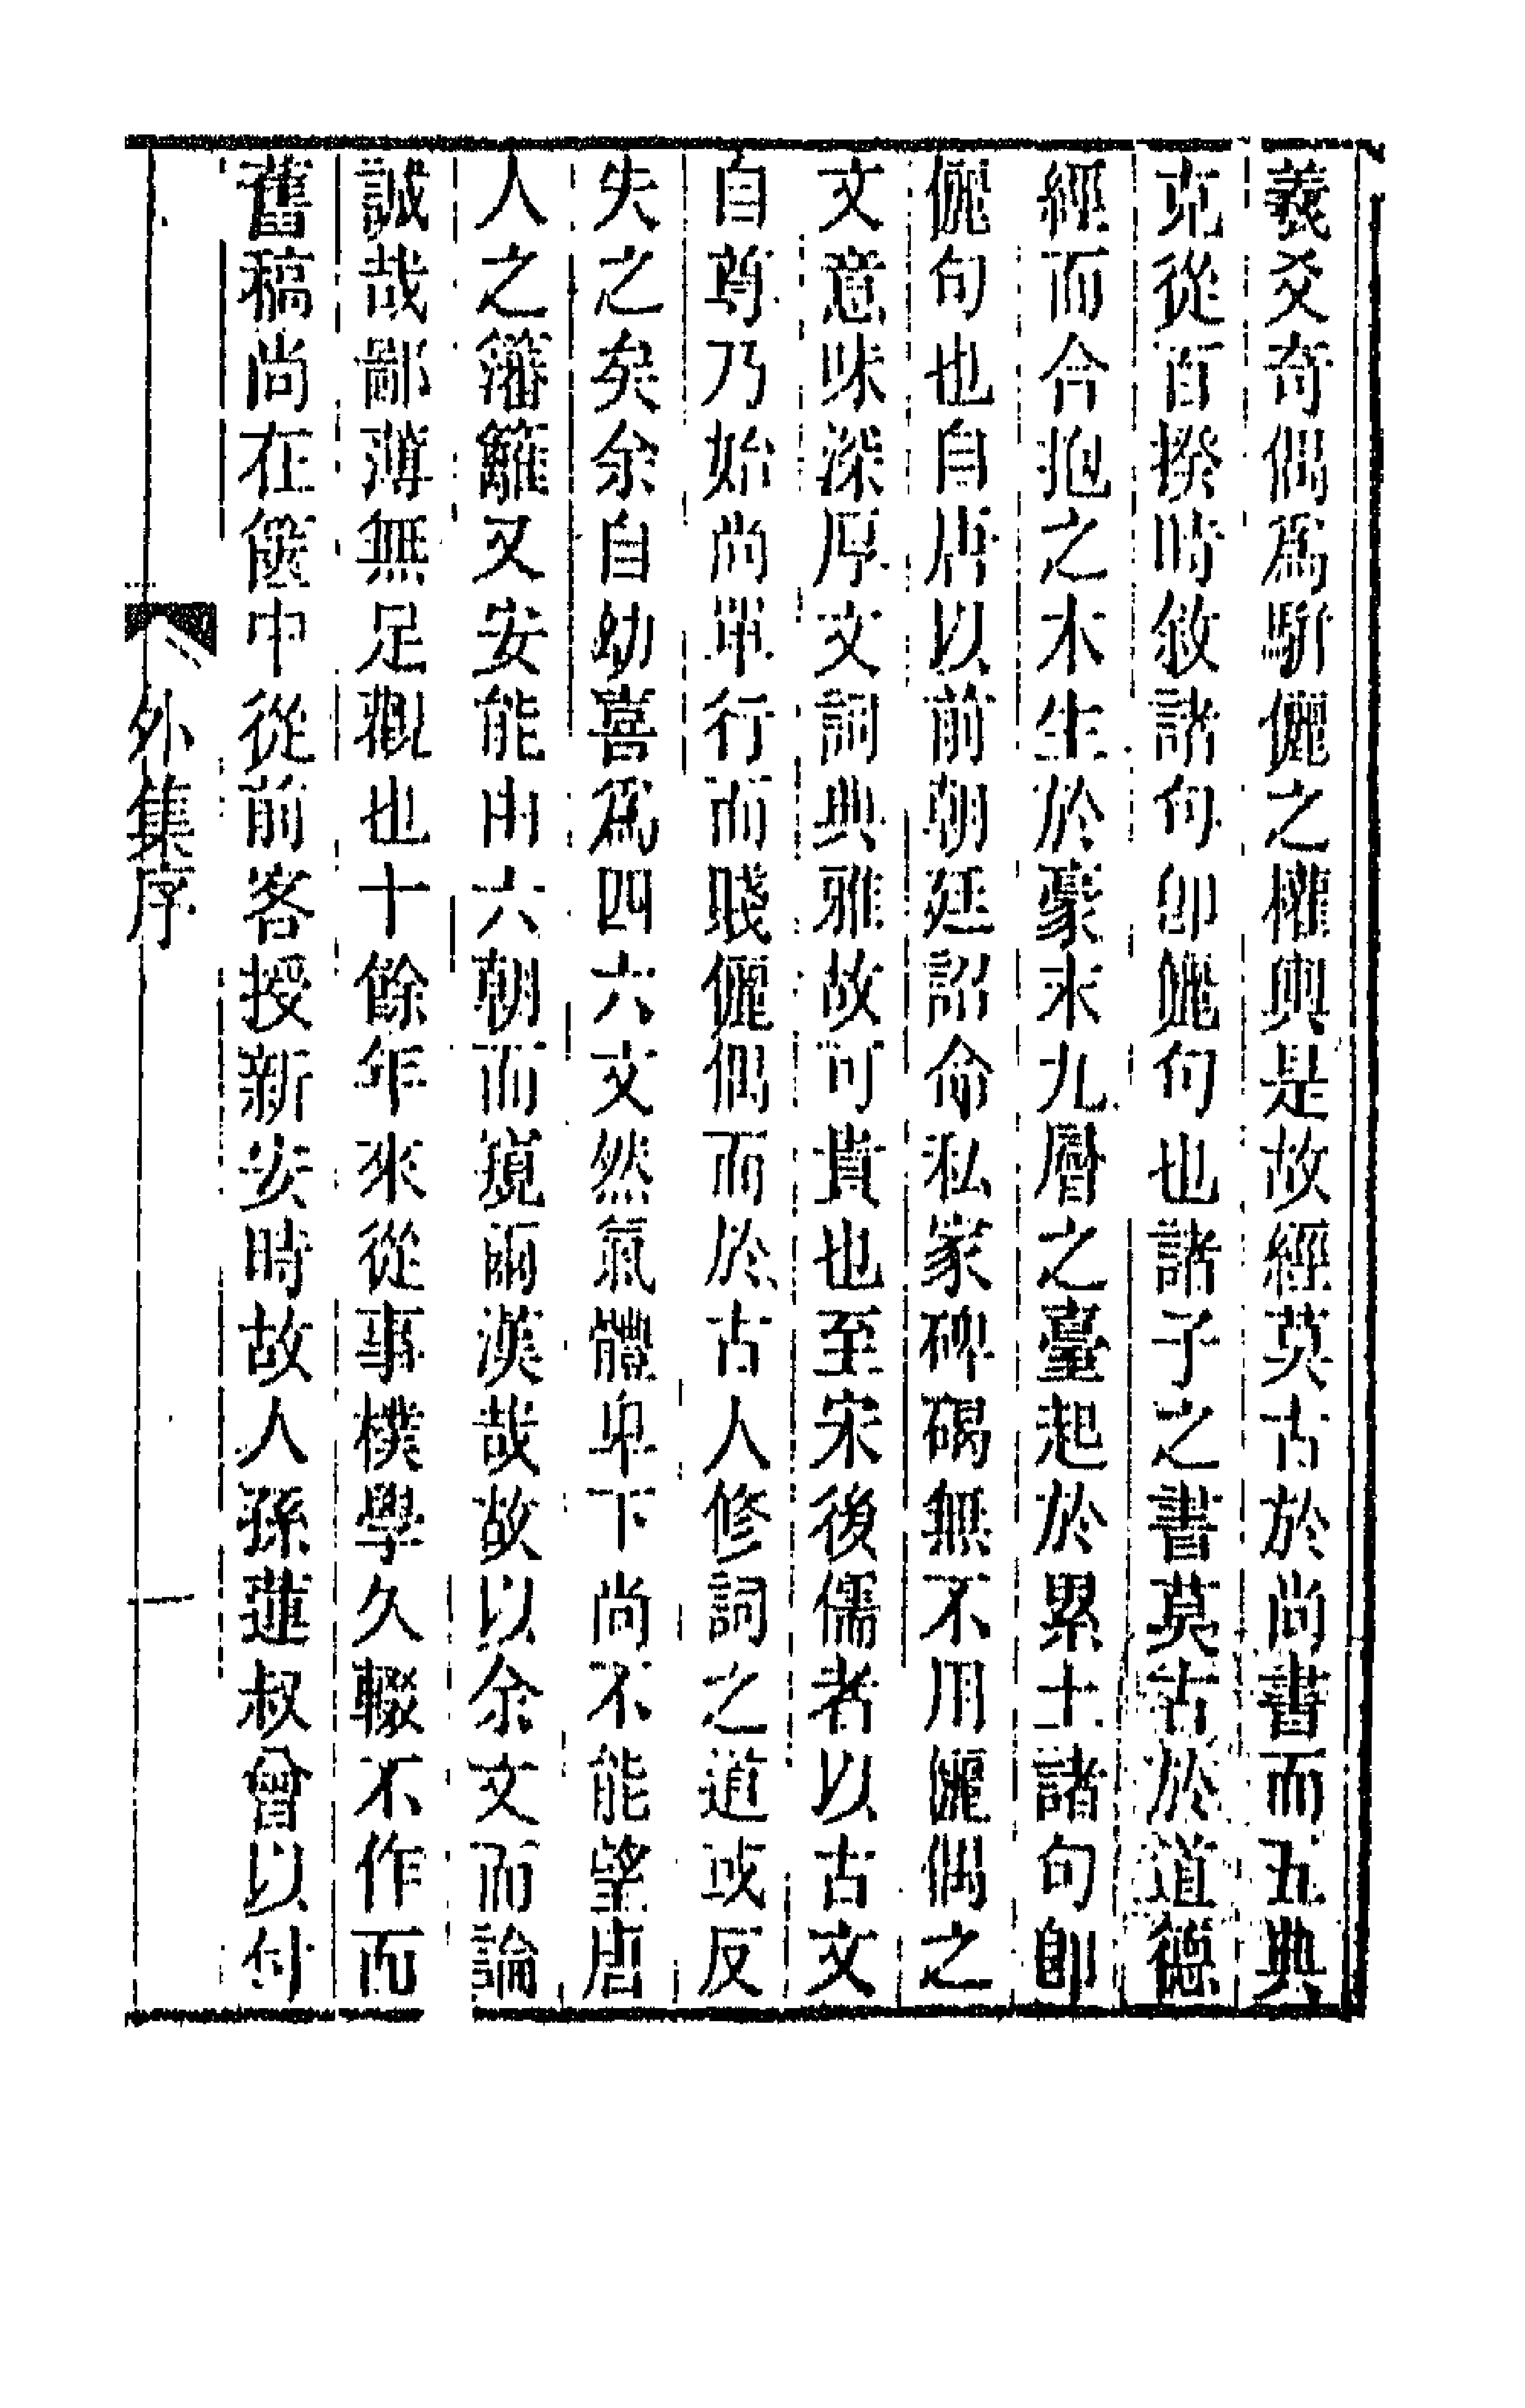 羲爻奇偶爲駢儷之權輿是故經莫古於尚書而五典
克從百揆時敘諸句卽儷句也諸子之書莫古於道德
經而合抱之木生於豪末九層之臺起於累土諸句卽
儷句也自唐以前朝廷詔命私家碑碣無不用儷偶之
文意味深厚文詞典雅故可貴也至宋後儒者以古文
自尊乃始尚單行而賤儷偶而於古人修詞之道或反
失之矣余自幼喜爲四六文然氣體卑下尚不能望唐
人之籓籬又安能由六朝而窺兩漢哉故以余文而論
誠哉鄙薄無足觀也十餘年來從事樸學久輟不作而
舊稿尚在篋中從前客授新安時故人孫蓮叔曾以付
外集序
一